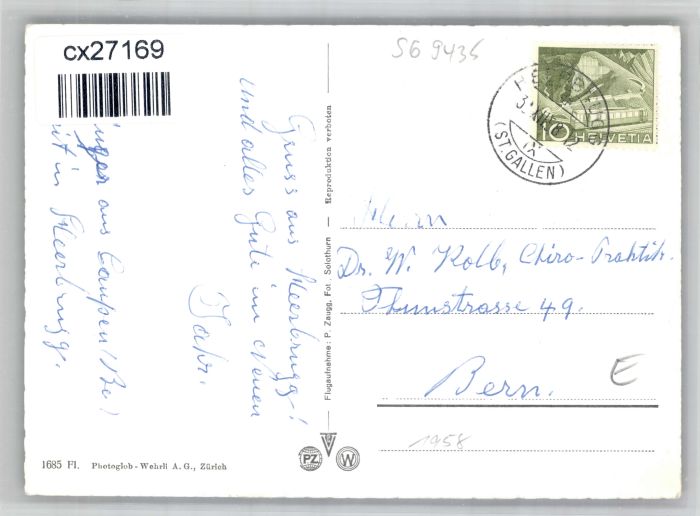 cx27169
SG 9435
HEERBRUGG
(ST. GALLEN)
10 HELVETIA
Gruss aus Heerbrugg!
und alles Gute im neuen
Jahr.
aus Laupen/Be)
in Heerbrugg.
Reproduktion verboten
Flugaufnahme: P. Zaugg, Fot. Solothurn
Herrn
Dr. W. Kolb, Chiro-Praktik.
Thunstrasse 49.
Bern.
E
1958
1685 Fl. Photoglob-Wehrli A. G., Zürich
PZ
W